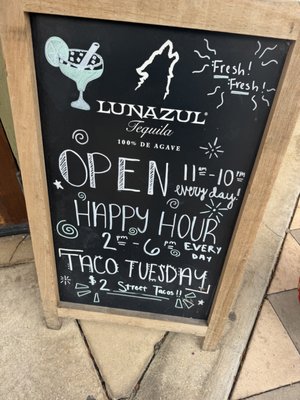 Fresh!
Fresh!
LUNAZUL®
Tequila
100% DE AGAVE
OPEN 11am-10pm
everyday!
HAPPY HOUR
2pm-6pm EVERY
DAY
TACO TUESDAY
$2 Street Tacos!!